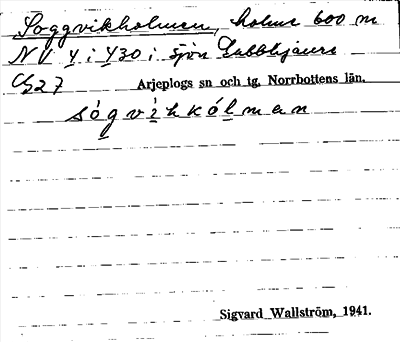 Soggvikholmen, holme 600 m
NV Y i Y30 i sjön Labbhjaure
C527 Arjeplogs sn och tg, Norrbottens län.
sógvìkkólman
Sigvard Wallström, 1941.